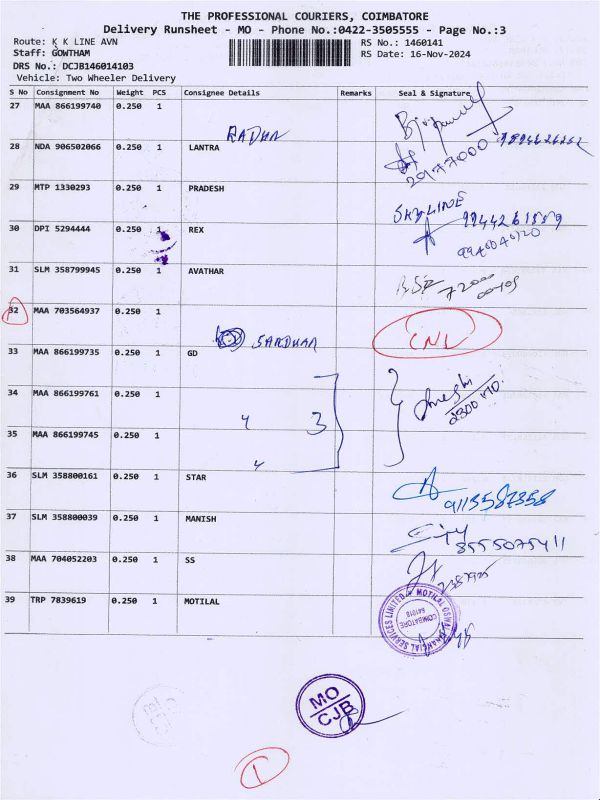 THE PROFESSIONAL COURIERS, COIMBATORE
Delivery Runsheet - MO - Phone No.:0422-3505555 - Page No.:3
Route: K K LINE AVN
RS No.: 1460141
Staff: GOWTHAM
RS Date: 16-Nov-2024
DRS No.: DCJB146014103
Vehicle: Two Wheeler Delivery
S No Consignment No Weight PCS Consignee Details Remarks Seal & Signature
27 MAA 866199740 0.250 1
28 NDA 906502066 0.250 1 LANTRA
20177000
29 MTP 1330293 0.250 1 PRADESH
SKYLINE
30 DPI 5294444 0.250 1 REX
31 SLM 358799945 0.250 1 AVATHAR
32 MAA 703564937 0.250 1
CNL
SARDHAR
33 MAA 866199735 0.250 1 GD
34 MAA 866199761 0.250 1
3
35 MAA 866199745 0.250 1
36 SLM 358800161 0.250 1 STAR
9113587358
37 SLM 358800039 0.250 1 MANISH
38 MAA 704052203 0.250 1 SS
39 TRP 7839619 0.250 1 MOTILAL
MOTILAL OSWAL FINANCIAL SERVICES LIMITED
COIMBATORE
641018
MO
CJB
1